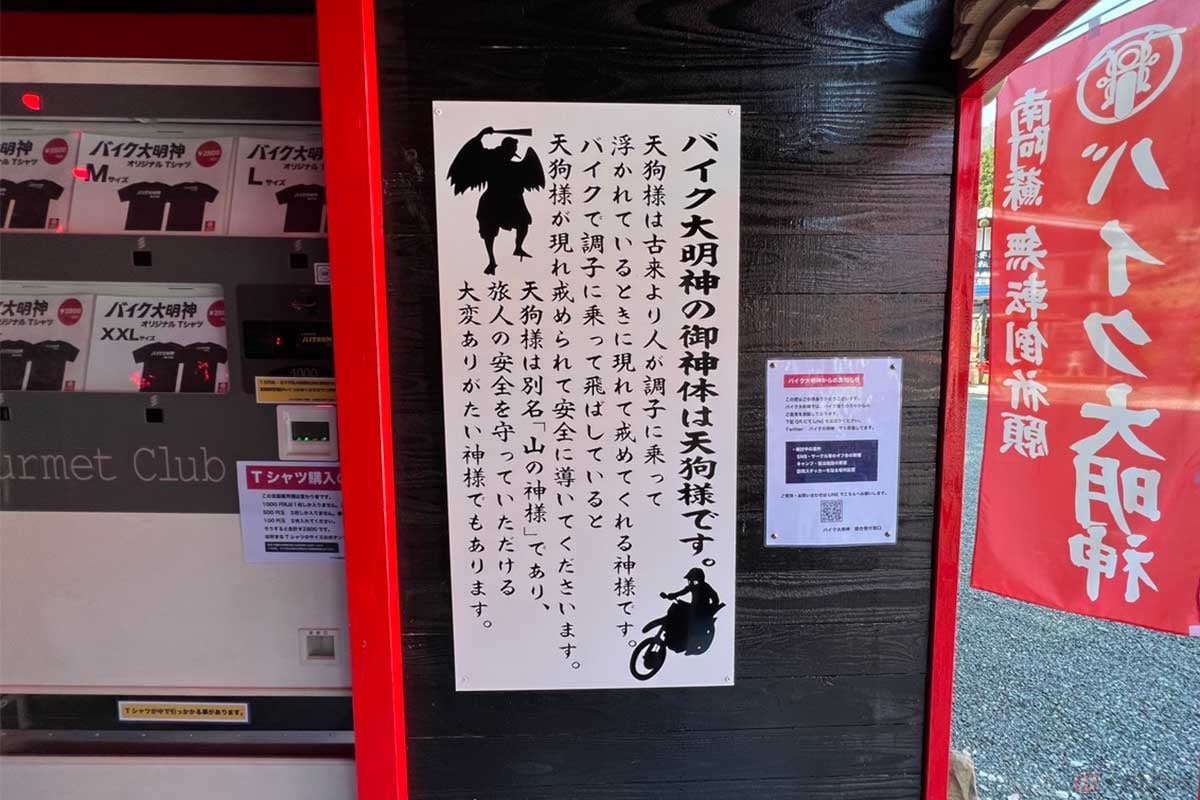 バイク大明神の御神体は天狗様です。
天狗様は古来より人が調子に乗って
浮かれているときに現れて戒めてくれる神様です。
バイクで調子に乗って飛ばしていると
天狗様が現れ戒められて安全に導いてくださいます。
天狗様は別名「山の神様」であり、
旅人の安全を守っていただける
大変ありがたい神様でもあります。
バイク大明神
南阿蘇 無転倒祈願
バイク大明神からのお知らせ
バイク大明神
オリジナルTシャツ
Mサイズ
¥2800
バイク大明神
オリジナルTシャツ
Lサイズ
バイク大明神
オリジナルTシャツ
XXLサイズ
¥2800
urmet Club
Tシャツ購入の
Tシャツが中で引っかかる事があります。